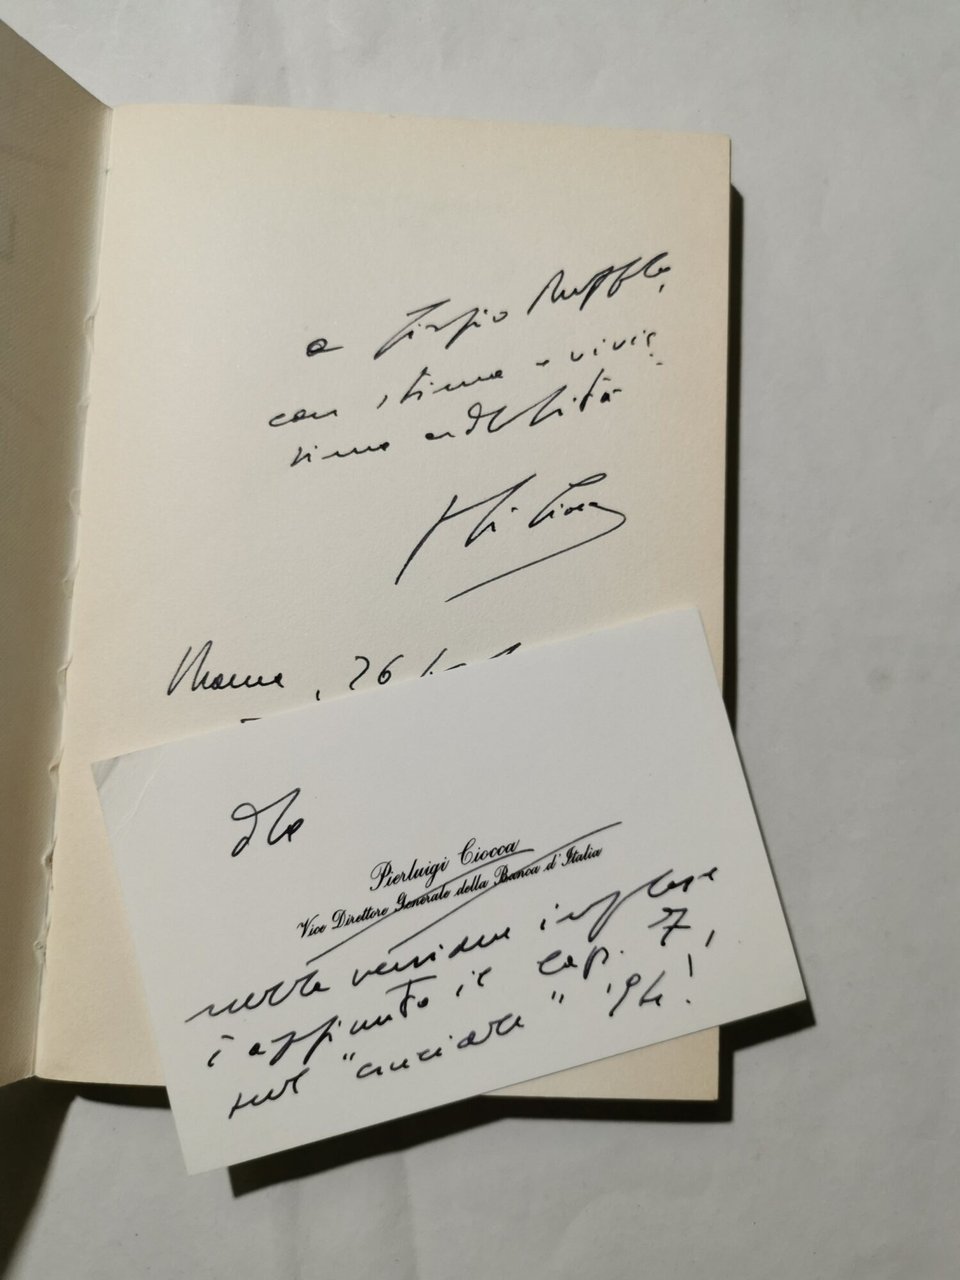 a Giorgio Ruffolo,
con stima e vivis-
sima cordialità
Roma, 26
Pierluigi Ciocca
Vice Direttore Generale della Banca d'Italia
nella versione inglese
è aggiunto il cap. 7,
sul "cruciale" '94!